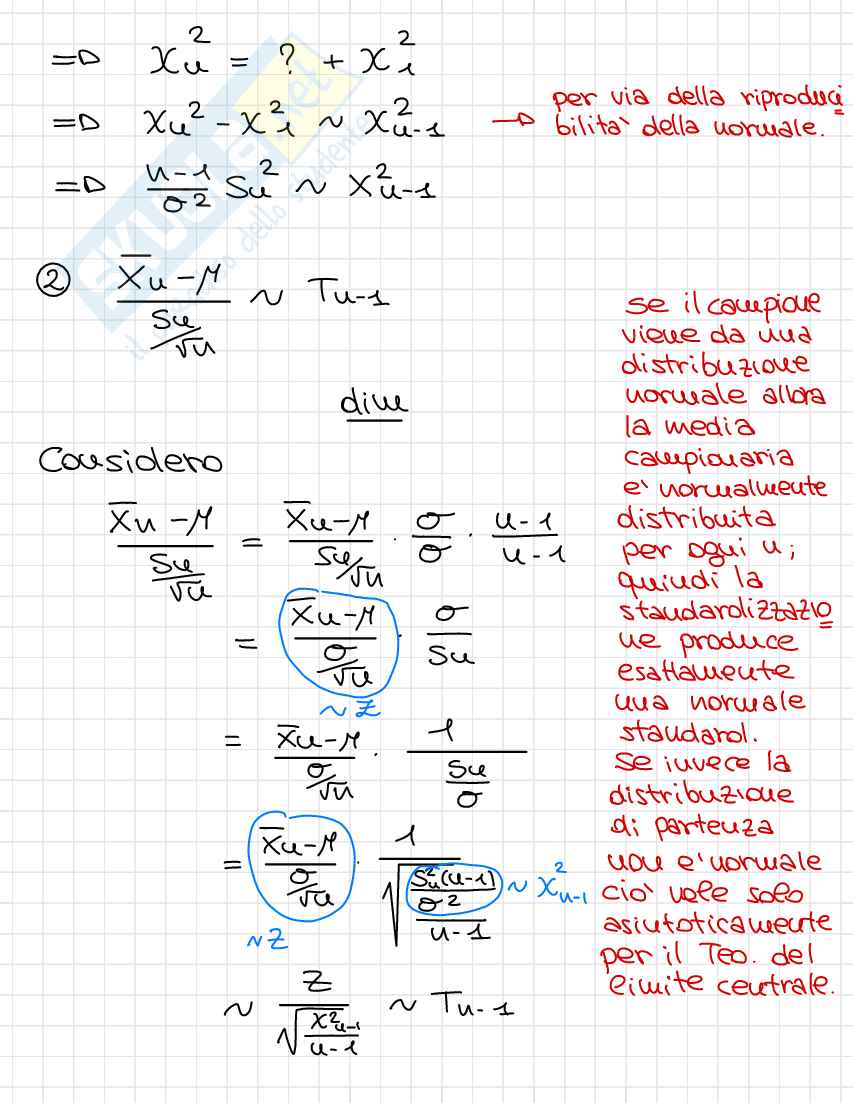 => χ_n^2 = ? + χ_1^2
=> χ_n^2 - χ_1^2 ~ χ^2_{n-1} → per via della riproduci
bilità della normale.
=> \frac{n-1}{σ^2} S_n^2 ~ χ^2_{n-1}
② \frac{\overline{X}_n - μ}{S_n/√n} ~ T_{n-1}
dim
Considero
\frac{\overline{X}_n - μ}{S_n/√n} = \frac{\overline{X}_n - μ}{S_n/√n} · \frac{σ}{σ} · \frac{n-1}{n-1}
= \frac{\overline{X}_n - μ}{σ/√n} · \frac{σ}{S_n}
~ Z
= \frac{\overline{X}_n - μ}{σ/√n} · \frac{1}{\frac{S_n}{σ}}
= \frac{\overline{X}_n - μ}{σ/√n} · \frac{1}{\sqrt{\frac{\frac{S_n^2(n-1)}{σ^2}}{n-1}}} ~ χ^2_{n-1}
~ Z
~ \frac{Z}{\sqrt{\frac{χ^2_{n-1}}{n-1}}} ~ T_{n-1}
se il campione
viene da una
distribuzione
normale allora
la media
campionaria
è normalmente
distribuita
per ogni n;
quindi la
standardizzazio
ne produce
esattamente
una normale
standard.
Se invece la
distribuzione
di partenza
non è normale
ciò vale solo
asintoticamente
per il Teo. del
limite centrale.
SKUOLA.net
il dello studente